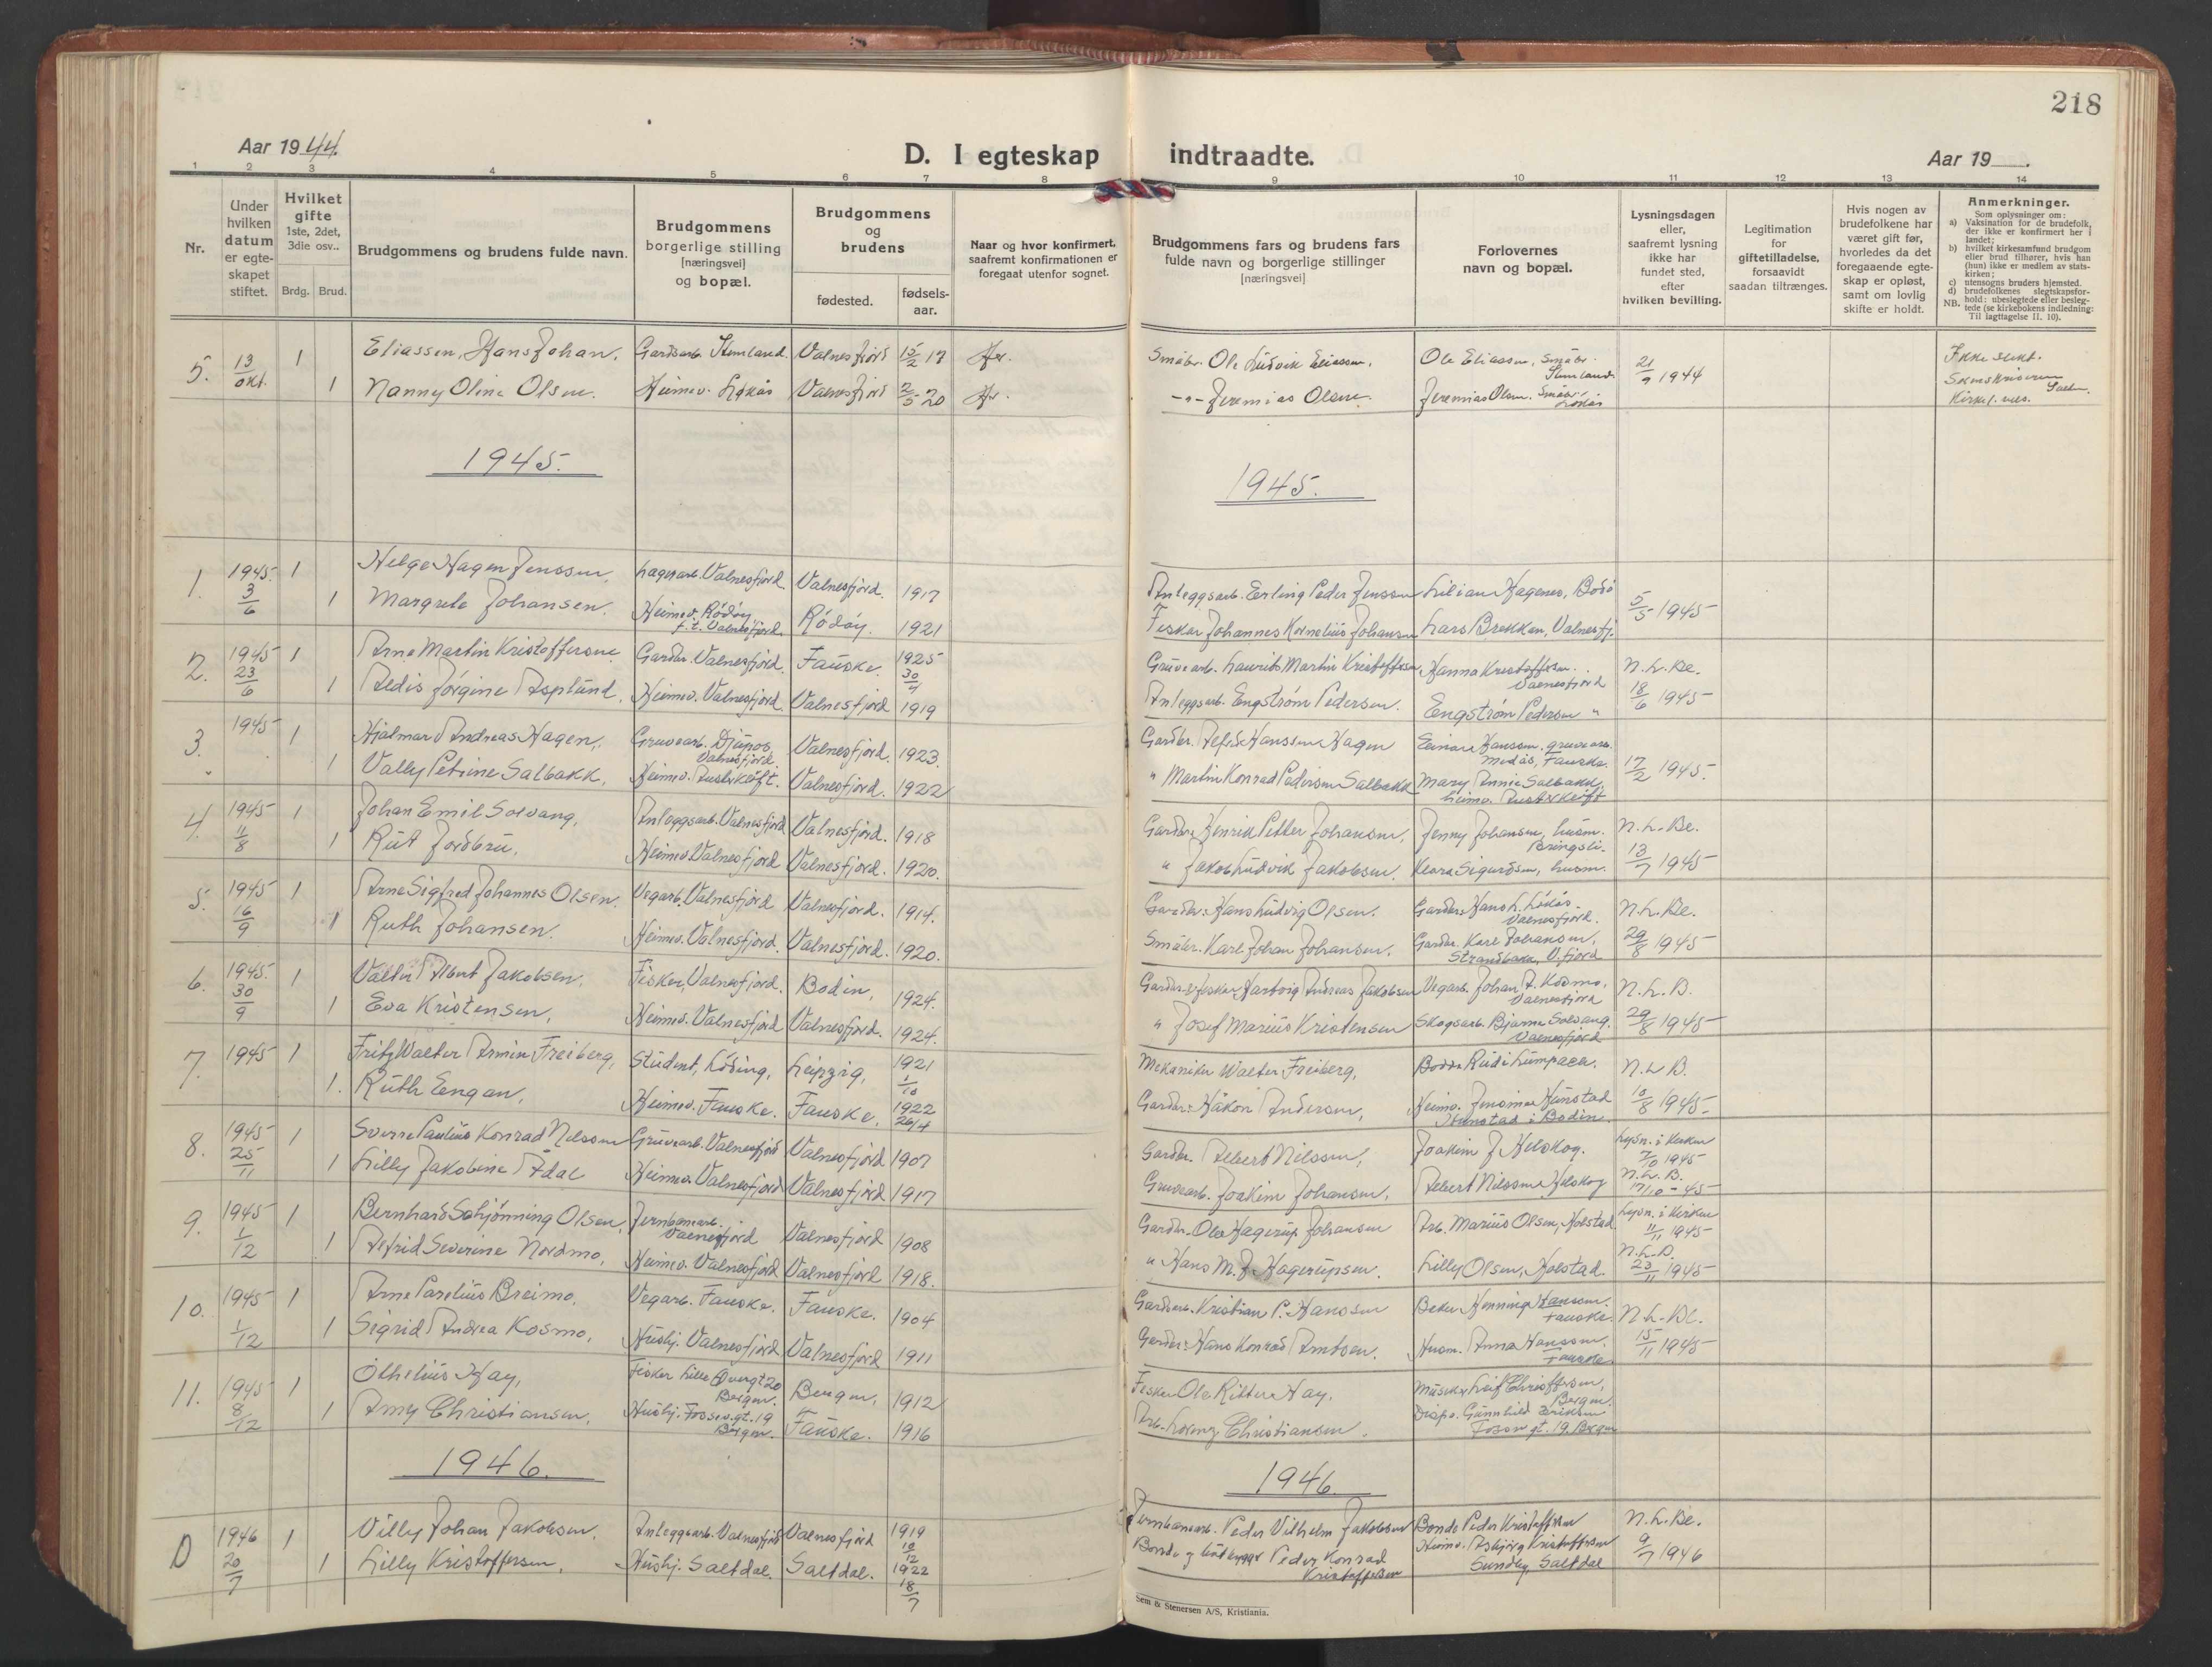 218
Aar 1944.
D. I egteskap indtraadte.
Aar 19__.
1 2 3 4 5 6 7 8 9 10 11 12 13 14
Nr.
Under hvilken datum er egte-skapet stiftet.
Hvilket gifte 1ste, 2det, 3die osv..
Brdg. Brud.
Brudgommens og brudens fulde navn.
Brudgommens borgerlige stilling [næringsvei] og bopæl.
Brudgommens og brudens
fødested.
fødsels-aar.
Naar og hvor konfirmert, saafremt konfirmationen er foregaat utenfor sognet.
Brudgommens fars og brudens fars fulde navn og borgerlige stillinger [næringsvei]
Forlovernes navn og bopæl.
Lysningsdagen eller, saafremt lysning ikke har fundet sted, efter hvilken bevilling.
Legitimation for giftetilladelse, forsaavidt saadan tiltrænges.
Hvis nogen av brudefolkene har været gift før, hvorledes da det foregaaende egte-skap er opløst, samt om lovlig skifte er holdt.
Anmerkninger.
Som oplysninger om:
a) Vaksination for de brudefolk, der ikke er konfirmert her i landet;
b) hvilket kirkesamfund brudgom eller brud tilhører, hvis han (hun) ikke er medlem av stats-kirken;
c) utensogns bruders hjemsted.
d) brudefolkenes slegtskapsfor-hold: ubeslegtede eller besleg-tede (se kirkebokens indledning: Til iagttagelse II. 10).
NB.
5. 13/okt. 1 Eliassen, Hans Johan. Gardsarb. Stemland. Valnesfjord 15/2 17 Her. Småbr. Ole Ludvik Eliassen. Ole Eliassen, Småbr. Stemland 21/9 1944 Ikke slekt.
1 Nanny Oline Olsen. Heimev. Løkås Valnesfjord 2/5 20 Her. -"- Jeremias Olsen. Jeremias Olsen. Småbr. Løkås
1945. 1945.
1. 1945. 3/6 1 Helge Hagen Jenssen, Lagerarb. Valnesfjord. Valnesfjord. 1917 Anleggsarb. Erling Peder Jenssen Lilian Hagenes, Bodø 5/5 1945
1 Margrete Johansen. Heimev. Rødøy f.t. Valnesfjord. Rødøy. 1921 Fisker Johannes Kornelius Johansen Lars Brekken, Valnesfj.
2. 1945 23/6 1 Arne Martin Kristoffersen Gardbr. Valnesfjord. Fauske. 1925 30/4 Gruvearb. Laurits Martin Kristoffersen, Hanna Kristoffersen. Valnesfjord N.L.Be. 18/6 1945
1 Aldis Jørgine Asplund. Heimev. Valnesfjord. Valnesfjord 1919 Anleggsarb. Engstrøm Pedersen. Engstrøm Pedersen "
3. 1945 1 Hjalmar Andreas Hagen, Gruvearb. Djupos, Valnesfjord. Valnesfjord. 1923. Gardbr. Alfred Hanssen Hagen Einar Hanssen. gruvearb. Medås, Fauske. 17/2 1945.
1 Vally Petrine Salbakk, Heimev. Austerkløft. Valnesfjord. 1922 " Martin Konrad Pedersen Salbakk Mary Annie Salbakk, heimev. Austerkløft
4. 1945 11/8 1 Johan Emil Solvang, Anleggsarb. Valnesfjord Valnesfjord. 1918 Gardbr. Henrik Petter Johansen, Jenny Johansen, husm. Bringsli. N.L.Be. 13/7 1945
1 Rut Jordbru, Heimev. Valnesfjord Valnesfjord. 1920. " Jakob Ludvik Jakobsen. Klara Sigurdsen, husm.
5. 1945 16/9 1 Arne Sigfred Johannes Olsen. Vegarb. Valnesfjord Valnesfjord. 1914. Gardbr. Hans Ludvig Olsen. Gardbr. Hans L. Løkås. Valnesfjord. N.L.Be. 29/8 1945
1 Ruth Johansen. Heimev. Valnesfjord. Valnesfjord. 1920. Småbr. Karl Johan Johansen. Gardbr. Karl Johansen, Strandbakk, V.fjord
6. 1945. 30/9 1 Valter Albert Jakobsen, Fisker, Valnesfjord. Bodin, 1924. Gardbr. & fisker Hartvig Andreas Jakobsen Vegarb. Johan A. Kosmo, Valnesfjord N.L.B. 29/8 1945
1 Eva Kristensen, Heimev. Valnesfjord Valnesfjord. 1924. " Josef Marius Kristensen Skogsarb. Bjarne Solvang. Valnesfjord
7. 1945 1 Fritz Walter Armin Freiberg, Student, Løding, Leipzig, 1921 1/10 Mekaniker Walter Freiberg, N.L.B. 10/8 1945.
1. Ruth Engan, Heimev. Fauske. Fauske. 1922 26/4 Gardbr. Håkon Andersen, Heimev. Hunstad Hunstad i Bodin
8. 1945 25/11 1 Sverre Paulius Konrad Nilssen Gruvearb. Valnesfjord Valnesfjord 1907 Gardbr. Albert Nilssen, Joakim J. Helskog. Lysn. i kirken 7/10 1945
1 Lilly Jakobine Ådal Heimev. Valnesfjord Valnesfjord 1917 Gruvearb. Joakim Johansen, Albert Nilssen, Helskog N.L.B. 17/10-45
9. 1945 1/12 1 Bernhard Schjønning Olsen, Jernbanearb. Valnesfjord Valnesfjord 1908 Gardbr. Ole Hagerup Johansen Arb. Marius Olsen, Holstad Lysn. i kirken 11/11 1945
1 Alfrid Severine Nordmo, Heimev. Valnesfjord Valnesfjord 1918. " Hans M. J. Hagerupsen. Lilly Olsen, Holstad. N.L.B. 23/11 1945
10. 1945 1/12 1 Arne Parelius Breimo. Vegarb. Fauske. Fauske. 1904 Gardbr. Kristian P. Hanssen Henning Hanssen. Fauske. N.L.Be. 15/11 1945
1 Sigrid Andrea Kosmo, Hushj. Valnesfjord Valnesfjord 1911 Gardbr. Hans Konrad Arntsen. Husm. Anna Hanssen. Fauske
11. 1945 8/12 1 Othelius Hay, Fisker Lille Øvregt 20 Bergen. Bergen, 1912 Fisker Ole Ritter Hay. Musiker Leif Christoffersen, Bergen.
1 Amy Christiansen, Hushj. Fossw.gt. 19 Bergen. Fauske. 1916 Arb. Lorenz Christiansen. Gunnhild Eriksen gt. 19. Bergen
1946. 1946.
D 1946 20/7 1 Villy Johan Jakobsen. Anleggsarb. Valnesfjord Valnesfjord 1919 10/12 Jernbanearb. Peder Vilhelm Jakobsen Bonde Peder Kristoffersen N.L.Be. 9/7 1946
1 Lilly Kristoffersen, Hushj. Saltdal. Saltdal. 1922 18/7 Bonde og båtbygger Peder Konrad Kristoffersen Heimev. Asbjørg Kristoffersen Sundby, Saltdal
Sem & Stenersen A/S, Kristiania.